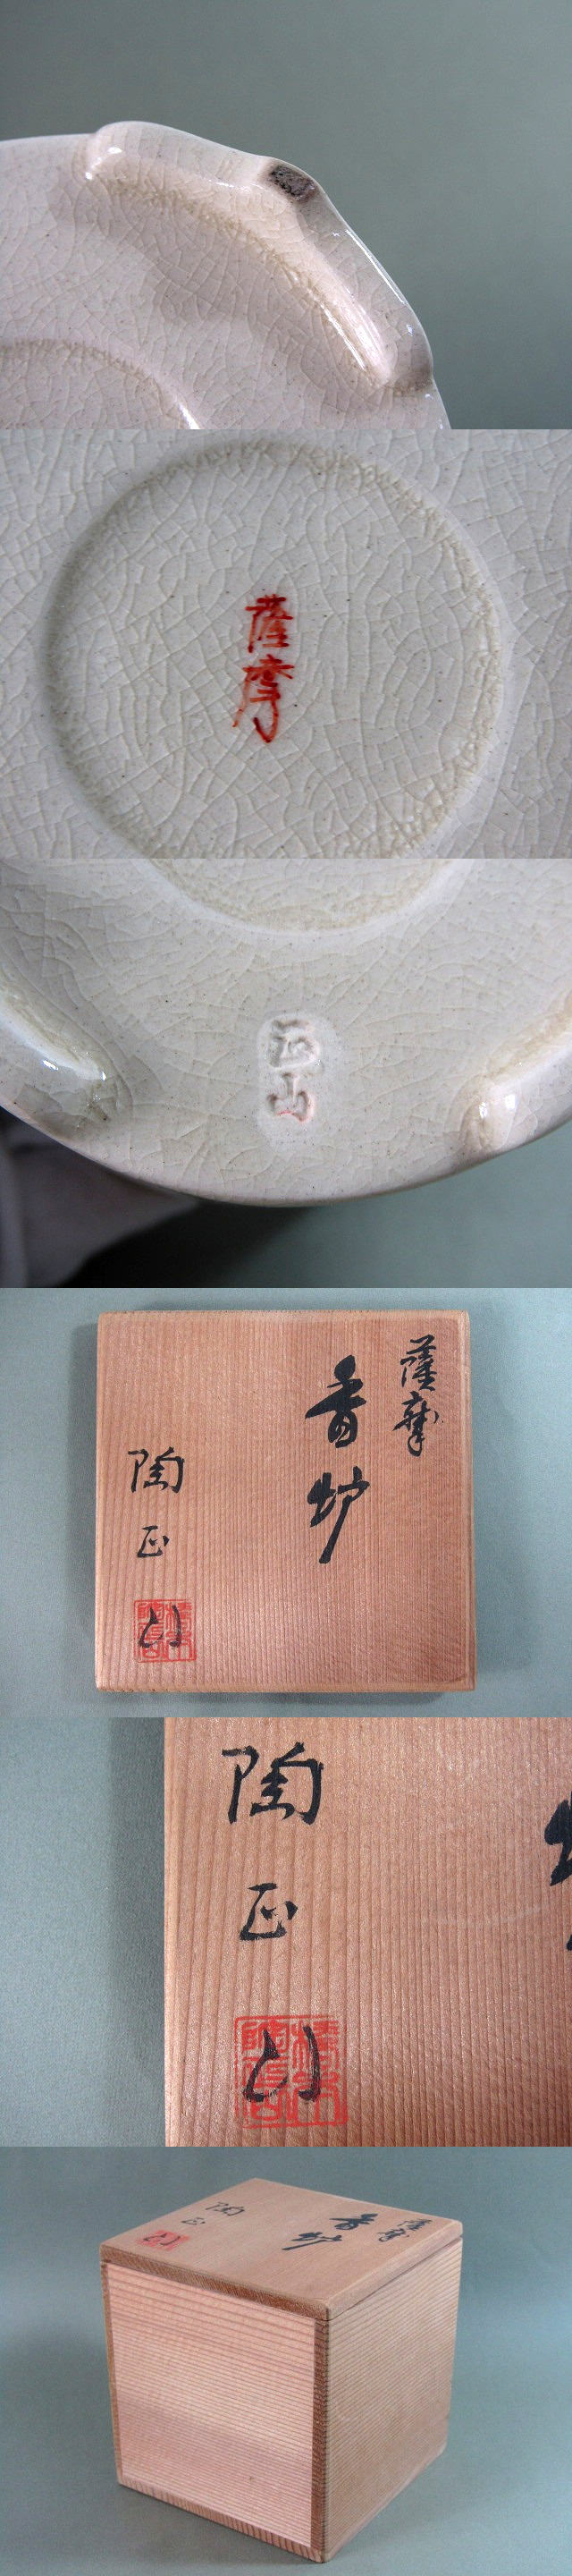 薩摩
正山
薩摩
香炉
陶正山
陶正山
薩摩
香炉
陶正山